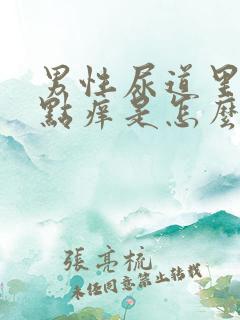 男性尿道里
點癢是怎麼
張亮梳
未经同意禁止转载